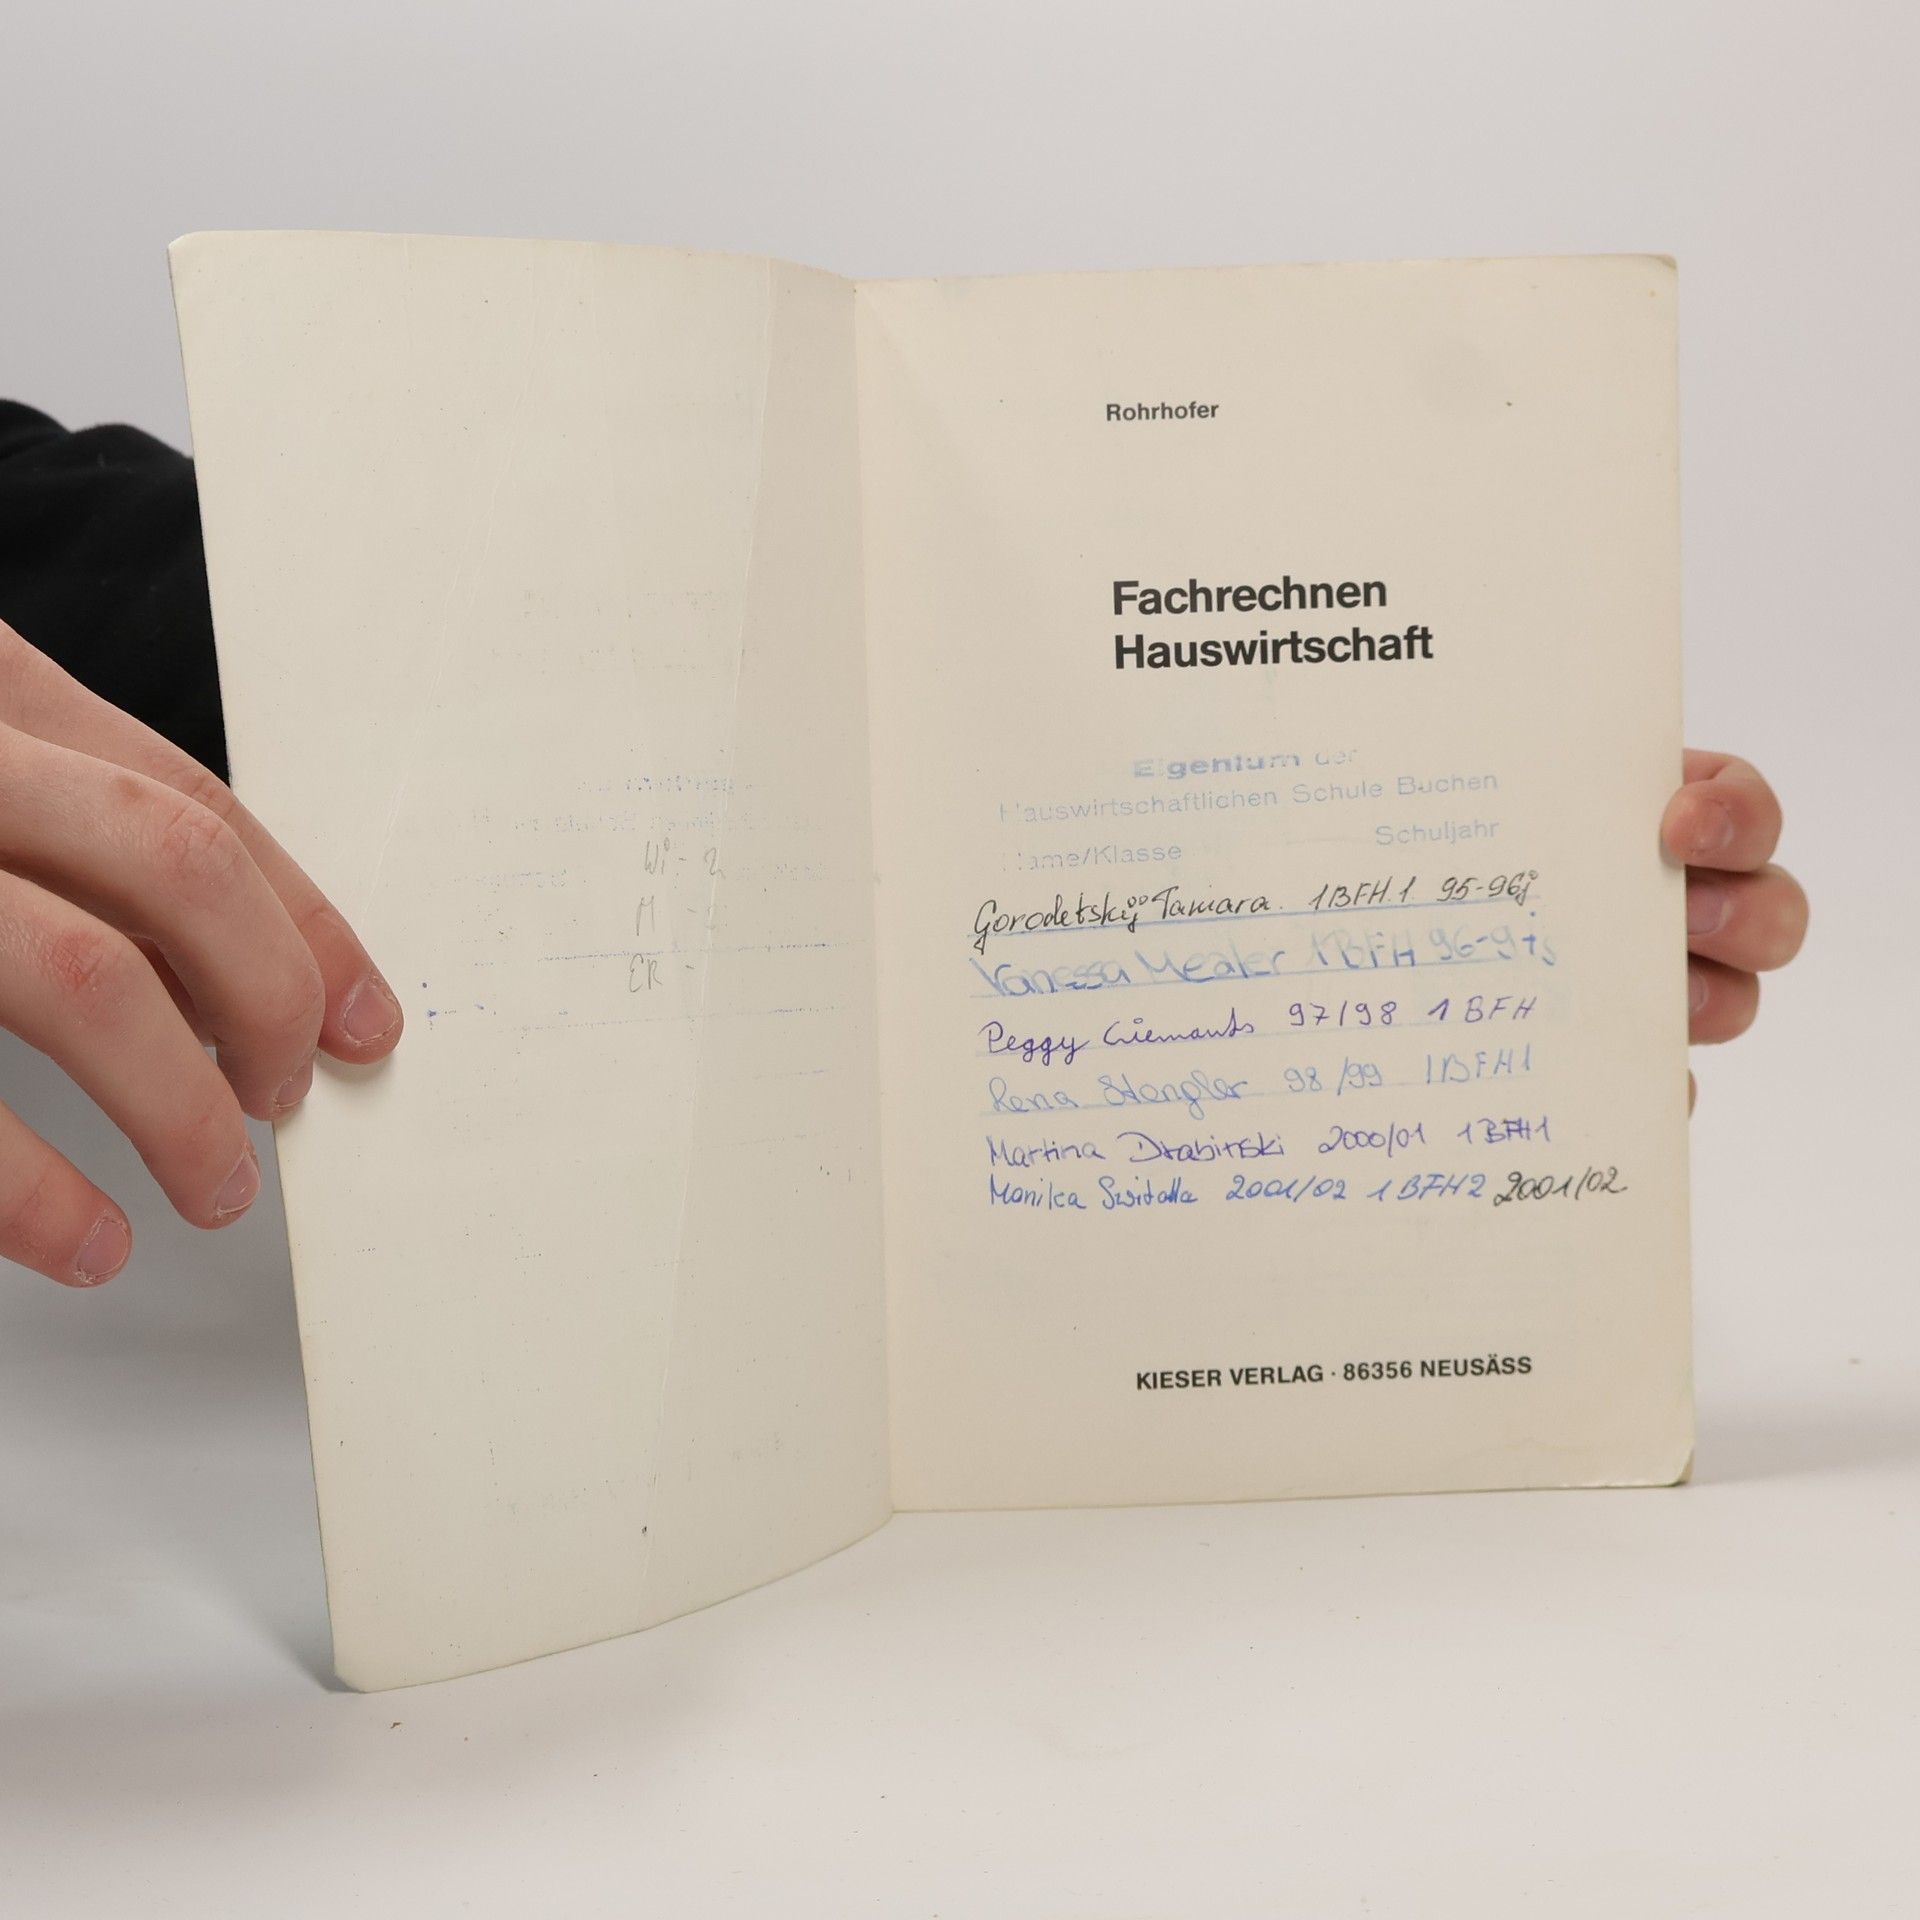 Wi - 2
M -
ER -
Rohrhofer
Fachrechnen
Hauswirtschaft
Eigentum der
Hauswirtschaftlichen Schule Buchen
Name/Klasse Schuljahr
Gorodetskÿ Tamara. 1BFH.1 95-96j
Vanessa 1BFH 96-97
Peggy 97/98 1 BFH
Rena Stengler 98/99 1BFH1
Martina Drabinski 2000/01 1BFH1
Monika Switalla 2001/02 1 BFH2 2001/02
KIESER VERLAG · 86356 NEUSÄSS